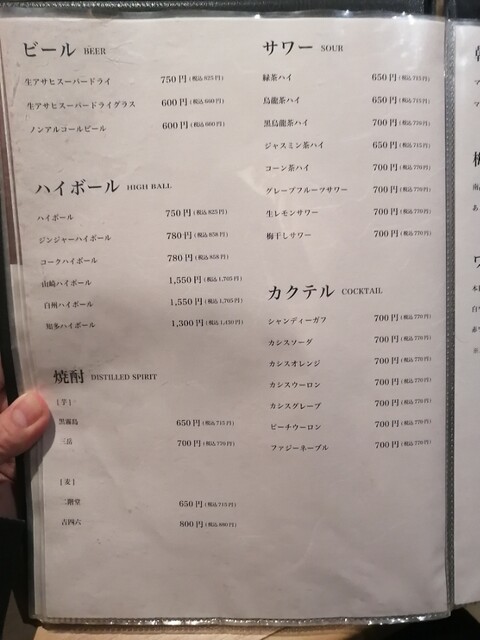 ビール BEER
生アサヒスーパードライ 750円(税込825円)
生アサヒスーパードライグラス 600円(税込660円)
ノンアルコールビール 600円(税込660円)
ハイボール HIGH BALL
ハイボール 750円(税込825円)
ジンジャーハイボール 780円(税込858円)
コークハイボール 780円(税込858円)
山崎ハイボール 1,550円(税込1,705円)
白州ハイボール 1,550円(税込1,705円)
知多ハイボール 1,300円(税込1,430円)
焼酎 DISTILLED SPIRIT
[芋]
黒霧島 650円(税込715円)
三岳 700円(税込770円)
[麦]
二階堂 650円(税込715円)
吉四六 800円(税込880円)
サワー SOUR
緑茶ハイ 650円(税込715円)
烏龍茶ハイ 650円(税込715円)
黒烏龍茶ハイ 700円(税込770円)
ジャスミン茶ハイ 650円(税込715円)
コーン茶ハイ 700円(税込770円)
グレープフルーツサワー 700円(税込770円)
生レモンサワー 700円(税込770円)
梅干しサワー 700円(税込770円)
カクテル COCKTAIL
シャンディーガフ 700円(税込770円)
カシスソーダ 700円(税込770円)
カシスオレンジ 700円(税込770円)
カシスウーロン 700円(税込770円)
カシスグレープ 700円(税込770円)
ピーチウーロン 700円(税込770円)
ファジーネーブル 700円(税込770円)